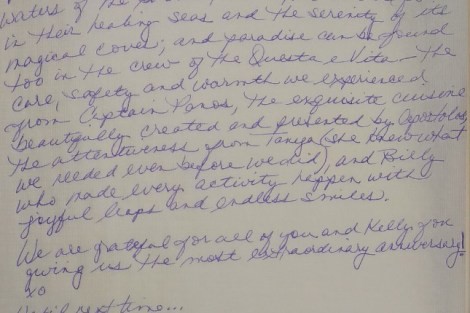 waters of the
in their healing seas and the serenity of its
magical coves; and paradise can be found
too in the crew of the Questa e Vita - the
care, safety and warmth we experienced
from Captain Panos, the exquisite cuisine
beautifully created and presented by Apostolos,
the attentiveness from Tanya (she knew what
we needed even before we did) and Billy
who made every activity happen with
joyful leaps and endless smiles.
We are grateful for all of you and Kelly for
giving us the most extraordinary anniversary!
xo
Until next time...